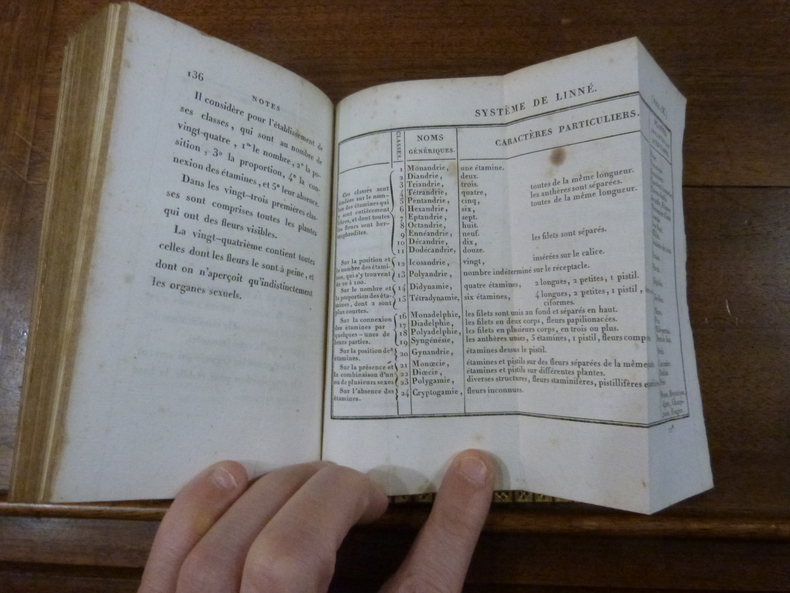 136
NOTES
Il considère pour l'établissement de
ses classes, qui sont au nombre de
vingt-quatre, 1º le nombre, 2º la po-
sition, 3º la proportion, 4º la con-
nexion des étamines, et 5º leur absence.
Dans les vingt-trois premières clas-
ses sont comprises toutes les plantes
qui ont des fleurs visibles.
La vingt-quatrième contient toutes
celles dont les fleurs le sont à peine, et
dont on n'aperçoit qu'indistinctement
les organes sexuels.
SYSTÈME DE LINNÉ.
CLASSES.
NOMS
GÉNÉRIQUES.
CARACTÈRES PARTICULIERS.
Ces classes sont
fondées sur le nom-
bre des étamines qui
y sont entièrement
libres, et dont toutes
les fleurs sont her-
maphrodites.
1 Monandrie, une étamine.
2 Diandrie, deux.
3 Triandrie, trois. toutes de la même longueur.
4 Tétrandrie, quatre, les anthères sont séparées.
5 Pentandrie, cinq, toutes de la même longueur.
6 Hexandrie, six,
7 Eptandrie, sept.
8 Octandrie, huit.
9 Ennéandrie, neuf. les filets sont séparés.
10 Décandrie, dix,
11 Dodécandrie, douze.
Sur la position et
le nombre des étami-
nes, qui s'y trouvent
de 20 à 100.
12 Icosandrie, vingt, insérées sur le calice.
13 Polyandrie, nombre indéterminé sur le réceptacle.
Sur le nombre et
la proportion des éta-
mines, dont 2 sont
plus courtes.
14 Didynamie, quatre étamines, 2 longues, 2 petites, 1 pistil.
15 Tétradynamie, six étamines, 4 longues, 2 petites, 1 pistil,
ciformes.
Sur la connexion
des étamines par
quelques-unes de
leurs parties.
16 Monadelphie, les filets sont unis au fond et séparés en haut.
17 Diadelphie, les filets en deux corps, fleurs papilionacées.
18 Polyadelphie, les filets en plusieurs corps, en trois ou plus.
19 Syngénésie, les anthères unies, 5 étamines, 1 pistil, fleurs
Sur la position des
étamines.
20 Gynandrie, étamines dessus le pistil.
Sur la présence et
la combinaison d'un
ou de plusieurs sexes
21 Monœcie, étamines et pistils sur des fleurs séparées de la même
22 Diœcie, étamines et pistils sur différentes plantes.
23 Polygamie, diverses structures, fleurs staminifères, pistillifères
Sur l'absence des
étamines.
24 Cryptogamie, fleurs inconnues.